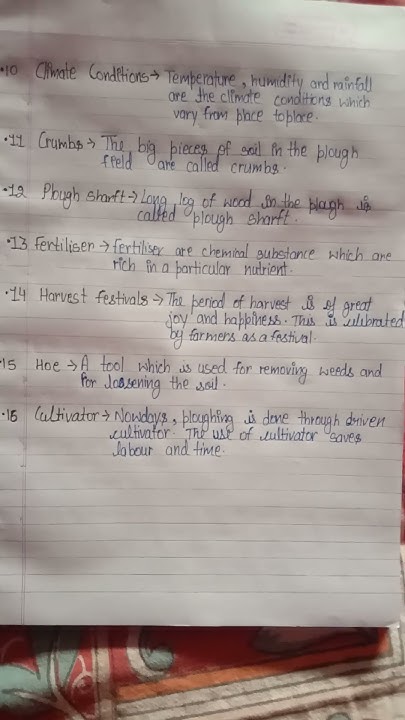 ·10 Climate Conditions → Temperature, humidity and rainfall
are the climate conditions which
vary from place to place.
·11 Crumbs → The big pieces of soil in the plough
field are called crumbs.
·12 Plough sharft → Long log of wood in the plough is
called plough sharft.
·13 fertiliser → fertiliser are chemical substance which are
rich in a particular nutrient.
·14 Harvest festivals → The period of harvest is of great
joy and happiness. This is celebrated
by farmers as a festival.
15 Hoe → A tool which is used for removing weeds and
for loosening the soil.
·16 Cultivator → Nowdays, ploughing is done through driven
cultivator. The use of cultivator saves
labour and time.